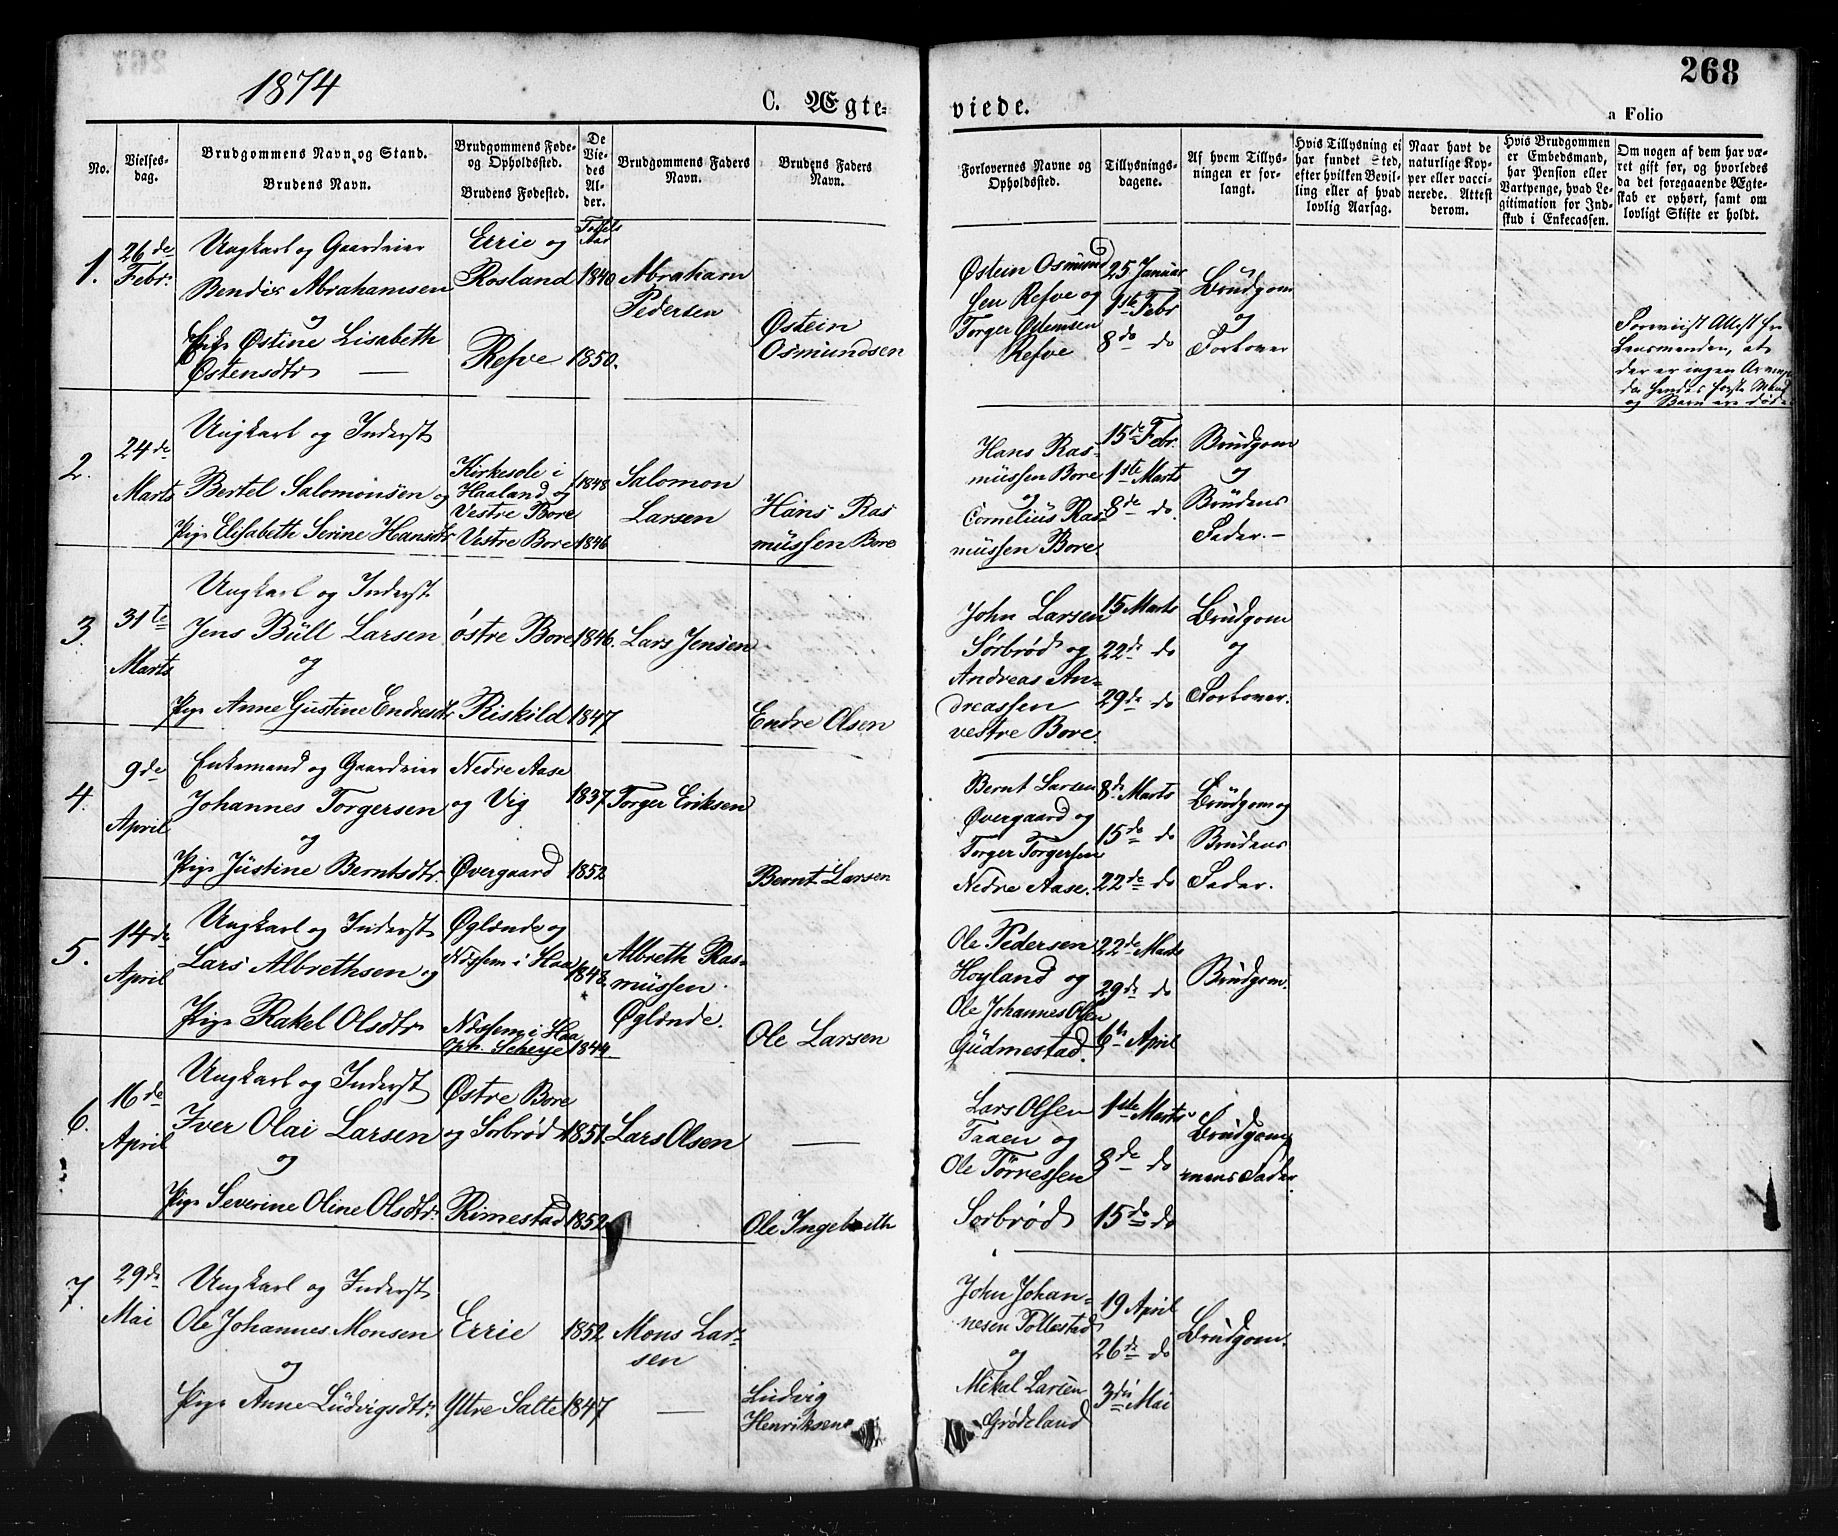 1874
C. Ægte-
viede.
268
a Folio
No.
Vielses-
dag.
Brudgommens Navn og Stand.
Brudens Navn.
Brudgommens Føde-
og Opholdssted.
Brudens Fødested.
De
Vie-
des
Al-
der.
Brudgommens Faders
Navn.
Brudens Faders
Navn.
Forlovernes Navne og
Opholdssted.
Tillysnings-
dagene.
Af hvem Tillys-
ningen er for-
langt.
Hvis Tillysning ei
har fundet Sted,
efter hvilken Bevil-
ling eller af hvad
lovlig Aarsag.
Naar havt de
naturlige Kop-
per eller vacci-
nerede. Attest
derom.
Hvis Brudgommen
er Embedsmand,
har Pension eller
Vartpenge, hvad Le-
gitimation for Ind-
skud i Enkecassen.
Om nogen af dem har væ-
ret gift før, og hvorledes
da det foregaaende Ægte-
skab er ophørt, samt om
lovligt Skifte er holdt.
Fødsels
Aar
1.
26de
Febr.
Ungkarl og Gaardeier
Bendix Abrahamsen
og
Enke Østine Lisabeth
Østensdtr
Errie og
Rosland
Refve
1840
1850.
Abraham
Pedersen
Østein
Osmundsen
Østein Osmund
sen Refve og
Torger Ostemsen
Refve
25 Januar
1ste Febr
8de do
Brudgom
og
Forlover
Foreviist Attest fra
Lensmanden, at
der er ingen
da hendes første Mand
og Barn ere døde.
2.
24de
Marts
Ungkarl og Inderst
Bertel Salomonsen og
Pige Elisabeth Serine Hansdtr
Kirkesole i
Haaland og
Vestre Bore
Vestre Bore
1848
1846
Salomon
Larsen
Hans Ras
mussen Bore
Hans Ras-
mussen Bore
og
Cornelius Ras-
mussen Bore.
15de Febr.
1ste Marts
8de do.
Brudgom
og
Brudens
Fader.-
3.
31te
Marts
Ungkarl og Inderst
Jens Büll Larsen
og
Pige Anne Gustine Endresdtr
østre Bore
Riskild
1846.
1847
Lars Jensen
Endre Olsen
John Larsen
Sørbrød og
Andreas An-
dreassen
vestre Bore.
15 Marts
22de do
29de do
Brudgom
og
Forlover.
4.
9de
April
Enkemand og Gaardeier
Johannes Torgersen
og
Pige Justine Berntsdtr.
Nedre Aase
og Vig
Øvergaard
1837
1852
Torger Eriksen
Bernt Larsen
Bernt Larsen
Øvergaard og
Torger Torgersen
Nedre Aase.
8de Marts
15de do
22de do
Brudgom og
Brudens
Fader.
5.
14de
April
Ungkarl og Inderst
Lars Albrethsen og
Pige Rakel Olsdtr
Øglænde og
Nissem i Haa
Nissem i Haa
oph.
1848.
1844
Albreth Ras-
mussen
Øglænde.
Ole Larsen
Ole Pedersen
Hoyland og
Ole Johannes Olsen
Gudmestad.
22de Marts
29de do
6te April
Brudgom.
6.
16de
April
Ungkarl og Inderst
Iver Olai Larsen
og
Pige Severine Oline Olsdtr.
Østre Bore
og Sörbröd
Rimestad
1851.
1852
Lars Olsen
—
Ole Ingebreth
Lars Olsen
Taaen og
Ole Tørressen
Sørbrød
1ste Marts
8de do
15de do
Brudgom
mens Fader.
7.
29de
Mai
Ungkarl og Inderst
Ole Johannes Monsen
og
Pige Anne Ludvigsdtr.
Errie
Yttre Salte
1852.
1847
Mons Lar-
sen
—
Ludvig
Henriksen
John Johan-
nesen Tollestad
og
Mikal Larsen
Grødeland
19 April
26de do
3die Mai
Brudgom.